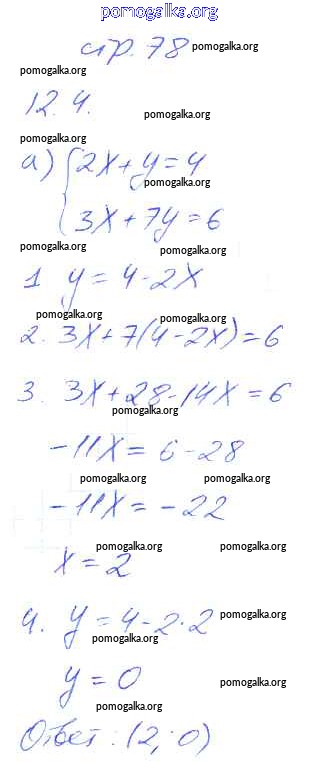 pomogalka.org
стр. 78 pomogalka.org
pomogalka.org
12.4. pomogalka.org
pomogalka.org
а) { 2x + y = 4
pomogalka.org
3x + 7y = 6
pomogalka.org pomogalka.org
1 y = 4 - 2x
pomogalka.org pomogalka.org
2. 3x + 7(4 - 2x) = 6
3. 3x + 28 - 14x = 6
pomogalka.org
-11x = 6 - 28
pomogalka.org pomogalka.org
-11x = -22
pomogalka.org pomogalka.org
x = 2
4. y = 4 - 2·2 pomogalka.org
pomogalka.org
y = 0 pomogalka.org
pomogalka.org
Ответ: (2; 0)
pomogalka.org